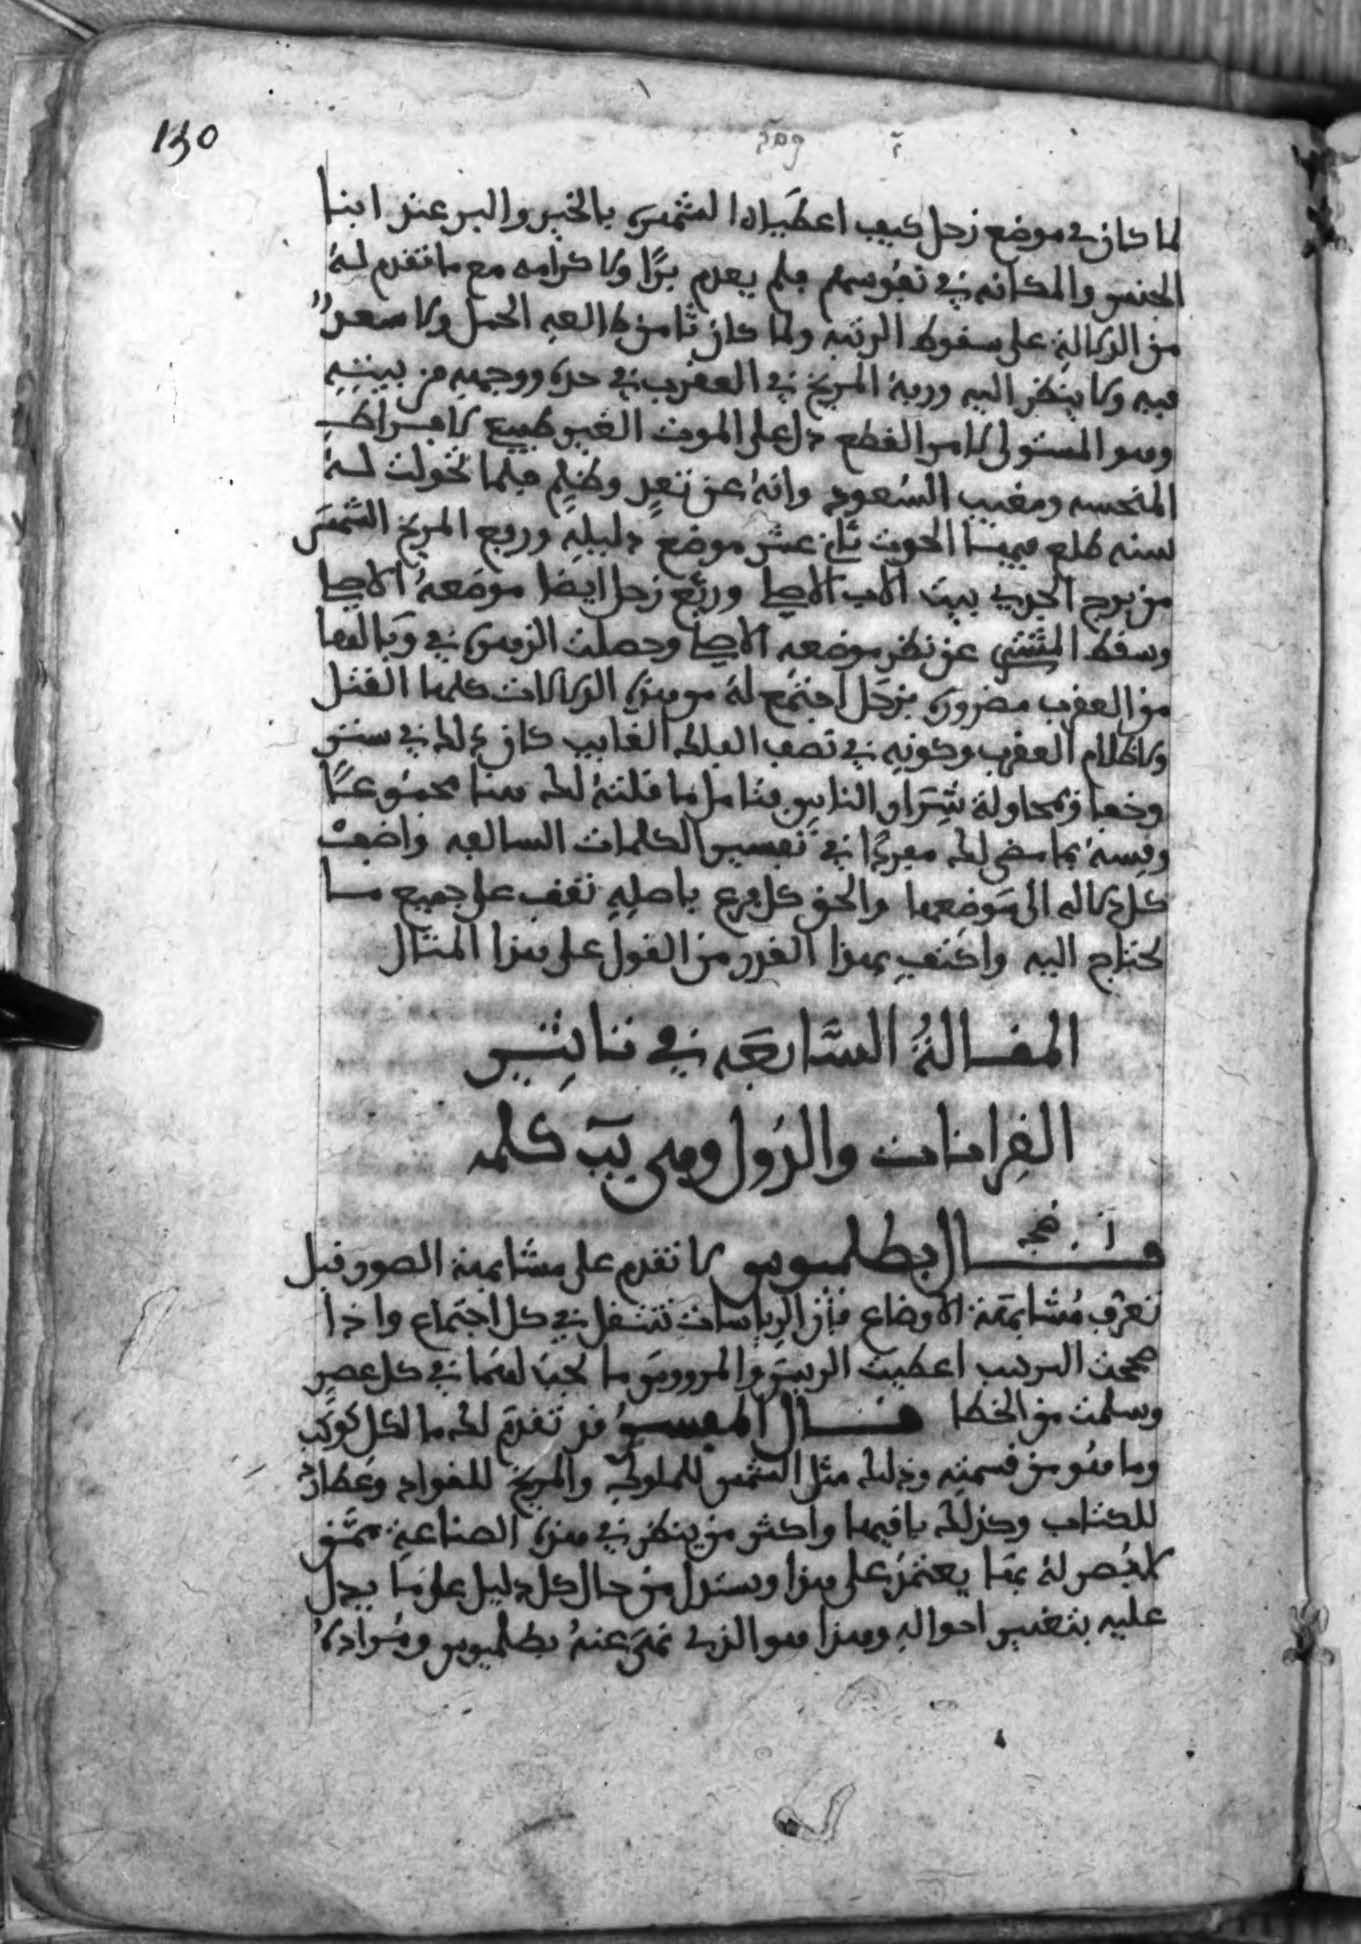 130
لما كان في موضع زحل كيف اعطياه الشمس بالخير والبر عند ابنا
الجنس والمكانه في نفوسهم فلم يعدم برًا ولا كرامه مع ما تقدم له
من الدلالة على سقوط الرتبه ولما كان ثامن طالعه الحمل ولا سعد
فيه ولا ينظر اليه وربه المريخ في العقرب في حده ووجهه من بيته
وهو المستولي لامر القطع دل على الموت الغير طبيعي لافراط
المنحسه ومغيب السعود وانه عن تعدٍ وظلم فلما تحولت له
سنه طلع فيها الحوت ثاني عشر موضع دليله وربع المريخ الشمس
من برج الجدي بيت الاب الاصلي وربع زحل ايضا موضعه الاصلي
وسقط المشتري عن نظر موضعه الاصلي وحصلت الزهرة في وبالها
من العقرب مضرورة بزحل اجتمع له من هذه الدلالات كلها القتل
ولاظلام العقرب وكونه في نصف الفلك الغايب كان ذلك في ستر
وخفا ومحاولة فتامل ما قلته لك هنا مجموعًا
وقسه بما مضى لك مفردًا في تفسير الكلمات السالفه واضف
كل دلاله الى موضعها والحق كل فرع باصله تقف على جميع ما
تحتاج اليه واكتف بهذا القدر من القول على هذا المثال
المقالة السابعه في تاثير
القرانات والدول وهي يب كلمه
قال بطلميوس لا تقدم على مشابهة الصور قبل
تعرف مشابهة الاوضاع فان الرياسات تنتقل في كل اجتماع واذا
صححت الترتيب اعطيت الرييس والمرووس ما يجب لهما في كل عصر
وسلمت من الخطا قال المفسر قد تقدم لك ما لكل كوكب
وما هو من قسمته وذلك مثل الشمس للملوك والمريخ للقواد وعطارد
للكتاب وكذلك باقيها واكثر من ينظر في هذه الصناعة ممن
لا بصر له بها يعتمد على هذا ويستدل من حال كل دليل على ما يدل
عليه بتغير احواله وهذا هو الذي نهى عنه بطلميوس ومراده